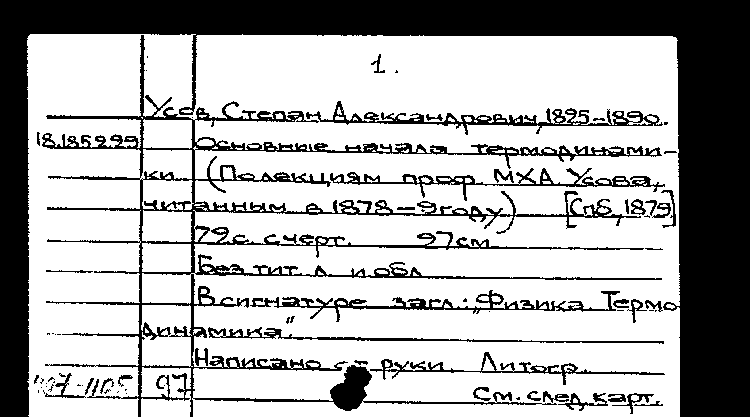 1.
Усов, Степан Александрович, 1825-1890.
18.185.299 Основные начала термодинами-
ки (По лекциям проф МХА Усова,
читанным в 1878-9 году) [Спб, 1879]
79 с. с черт. 27 см
Без тит. л. и обл
В сигнатуре загл.: „Физика. Термо
динамика“.
Написано от руки. Литогр.
97 См. след. карт.